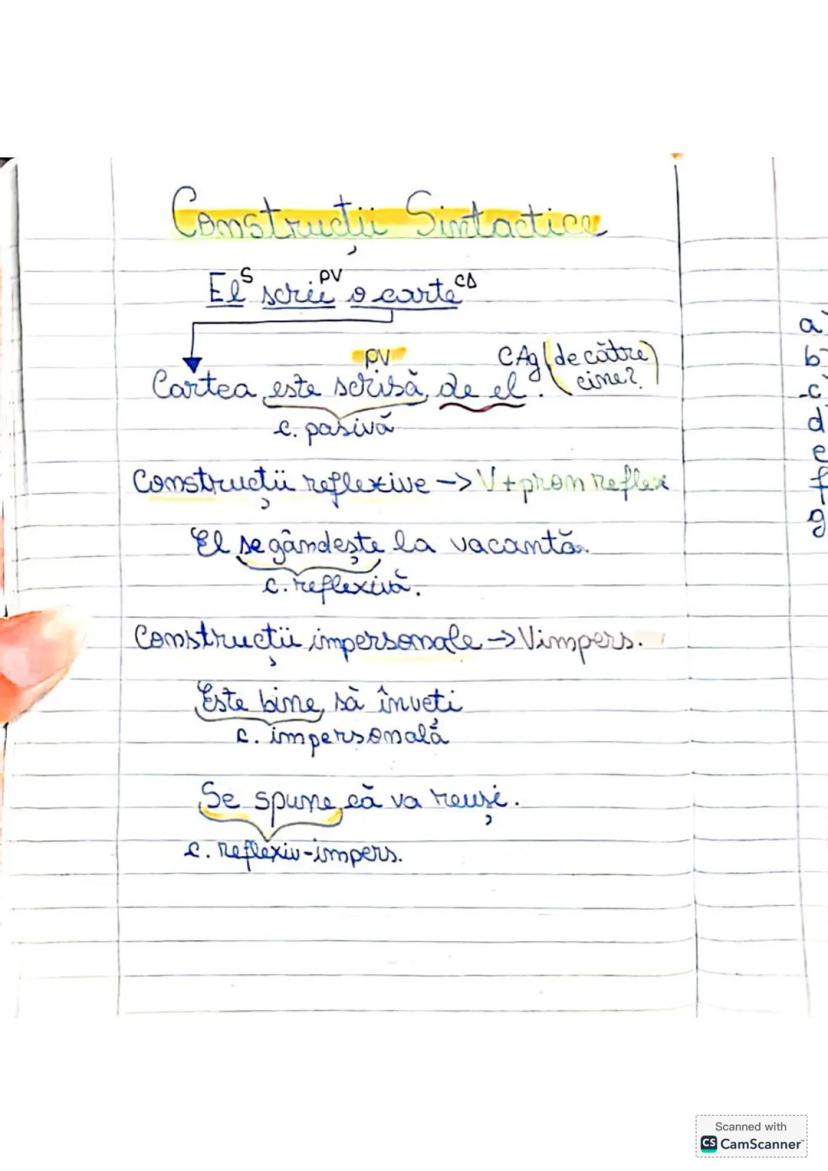 Construcții Sintactice
El S scrie PV o carte CD
PV CAg (de către cine?)
Cartea este scrisă de el.
c. pasivă
Construcții reflexive -> V+pron reflex
El se gândește la vacantă.
c. reflexivă.
Construcții impersonale -> V impers.
Este bine să înveți
c. impersonală
Se spune că va reuși.
c. reflexiv-impers.
a
b
c
d
e
f
g
Scanned with
CS CamScanner